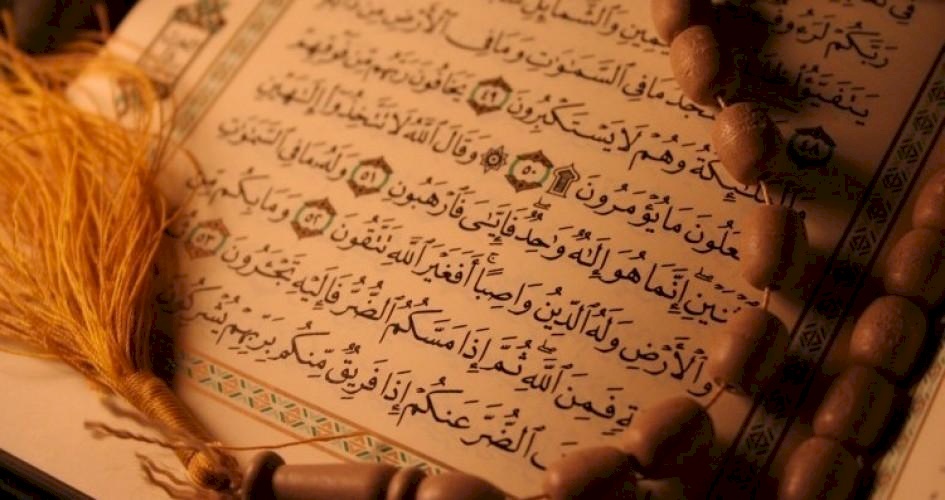 فِي
رَبَّكُمْ لَرَءُوفٌ
يَتَفَيَّؤُا۟ وَٱلشَّمَآئِلِ
٤٨ مَا فِى ٱلسَّمَٰوَٰتِ وَمَا فِى ٱلْأَرْضِ مِن
وَهُمْ لَا يَسْتَكْبِرُونَ ٤٩ يَخَافُونَ رَبَّهُم مِّن فَوْقِهِمْ
مَا يُؤْمَرُونَ ۩ ٥٠ ۞ وَقَالَ ٱللَّهُ لَا تَتَّخِذُوٓا۟ إِلَٰهَيْنِ
إِنَّمَا هُوَ إِلَٰهٌ وَٰحِدٌ فَإِيَّٰىَ فَٱرْهَبُونِ ٥١ وَلَهُۥ مَا فِى ٱلسَّمَٰوَٰتِ
وَٱلْأَرْضِ وَلَهُ ٱلدِّينُ وَاصِبًا ۚ أَفَغَيْرَ ٱللَّهِ تَتَّقُونَ ٥٢ وَمَا بِكُم مِّن
فَمِنَ ٱللَّهِ ۖ ثُمَّ إِذَا مَسَّكُمُ ٱلضُّرُّ فَإِلَيْهِ تَجْـَٔرُونَ ٥٣
ٱلضُّرَّ عَنكُمْ إِذَا فَرِيقٌ مِّنكُم بِرَبِّهِمْ يُشْرِكُونَ